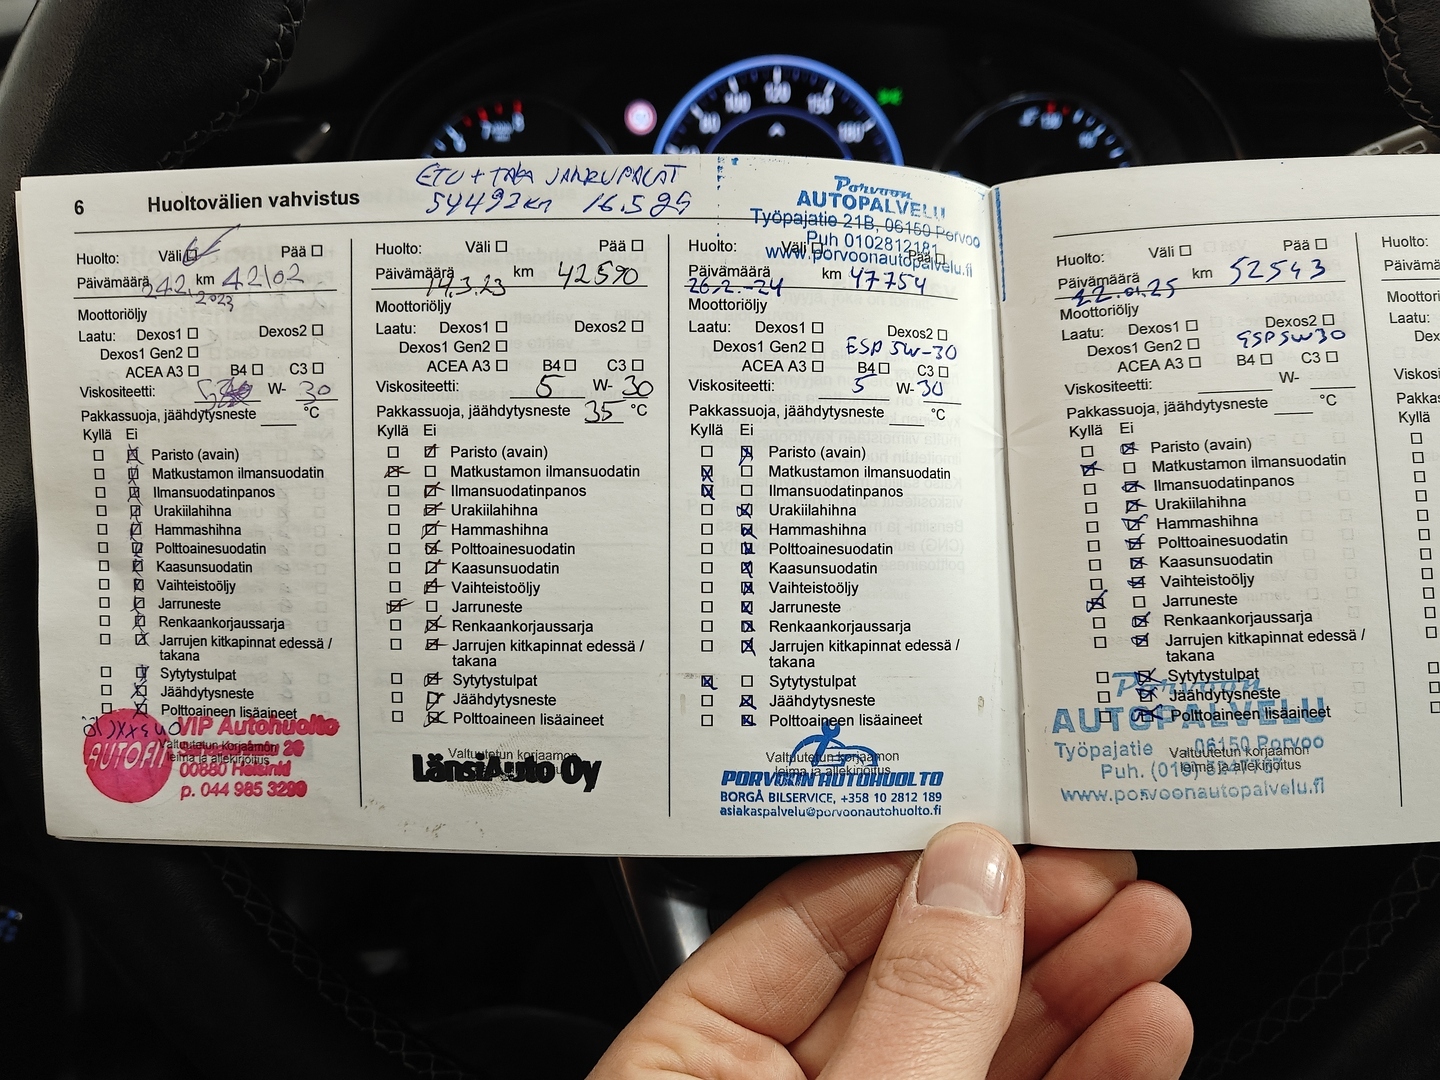 6 Huoltovälien vahvistus
ETU + TAKA JARRUPALAT
54492km 16.5.25
Huolto: Väli ☐ Pää ☐
Päivämäärä 24.2. 2023 km 42102
Moottoriöljy
Laatu: Dexos1 ☐ Dexos2 ☐
Dexos1 Gen2 ☐
ACEA A3 ☐ B4 ☐ C3 ☐
Viskositeetti: W- 30
Pakkassuoja, jäähdytysneste °C
Kyllä Ei
Paristo (avain)
Matkustamon ilmansuodatin
Ilmansuodatinpanos
Urakiilahihna
Hammashihna
Polttoainesuodatin
Kaasunsuodatin
Vaihteistoöljy
Jarruneste
Renkaankorjaussarja
Jarrujen kitkapinnat edessä /
takana
Sytytystulpat
Jäähdytysneste
Polttoaineen lisäaineet
Valtuutetun korjaamon
leima ja allekirjoitus
AUTOFIT
VIP Autohuolto
00880 Helsinki
p. 044 985 3299
Huolto: Väli ☐ Pää ☐
Päivämäärä 14.3.23 km 42590
Moottoriöljy
Laatu: Dexos1 ☐ Dexos2 ☐
Dexos1 Gen2 ☐
ACEA A3 ☐ B4 ☐ C3 ☐
Viskositeetti: 5 W- 30
Pakkassuoja, jäähdytysneste 35 °C
Kyllä Ei
Paristo (avain)
Matkustamon ilmansuodatin
Ilmansuodatinpanos
Urakiilahihna
Hammashihna
Polttoainesuodatin
Kaasunsuodatin
Vaihteistoöljy
Jarruneste
Renkaankorjaussarja
Jarrujen kitkapinnat edessä /
takana
Sytytystulpat
Jäähdytysneste
Polttoaineen lisäaineet
Valtuutetun korjaamon
LänsiAuto Oy
Porvoon
AUTOPALVELU
Työpajatie 21B, 06150 Porvoo
Puh 0102812181
www.porvoonautopalvelu.fi
Huolto: Väli ☐ Pää ☐
Päivämäärä 26.2.-24 km 47754
Moottoriöljy
Laatu: Dexos1 ☐ Dexos2 ☐
Dexos1 Gen2 ☐ ESP 5W-30
ACEA A3 ☐ B4 ☐ C3 ☐
Viskositeetti: 5 W- 30
Pakkassuoja, jäähdytysneste °C
Kyllä Ei
Paristo (avain)
Matkustamon ilmansuodatin
Ilmansuodatinpanos
Urakiilahihna
Hammashihna
Polttoainesuodatin
Kaasunsuodatin
Vaihteistoöljy
Jarruneste
Renkaankorjaussarja
Jarrujen kitkapinnat edessä /
takana
Sytytystulpat
Jäähdytysneste
Polttoaineen lisäaineet
Valtuutetun korjaamon
leima ja allekirjoitus
PORVOON AUTOHUOLTO
BORGÅ BILSERVICE, +358 10 2812 189
asiakaspalvelu@porvoonautohuolto.fi
Huolto: Väli ☐ Pää ☐
Päivämäärä 22.01.25 km 52543
Moottoriöljy
Laatu: Dexos1 ☐ Dexos2 ☐
Dexos1 Gen2 ☐ ESP 5W30
ACEA A3 ☐ B4 ☐ C3 ☐
Viskositeetti: W-
Pakkassuoja, jäähdytysneste °C
Kyllä Ei
Paristo (avain)
Matkustamon ilmansuodatin
Ilmansuodatinpanos
Urakiilahihna
Hammashihna
Polttoainesuodatin
Kaasunsuodatin
Vaihteistoöljy
Jarruneste
Renkaankorjaussarja
Jarrujen kitkapinnat edessä /
takana
Sytytystulpat
Jäähdytysneste
Polttoaineen lisäaineet
Valtuutetun korjaamon
leima ja allekirjoitus
Porvoon
AUTOPALVELU
Työpajatie 06150 Porvoo
Puh.
www.porvoonautopalvelu.fi
Huolto:
Moottoriöljy
Laatu:
Kyllä
80 100 120 150 180